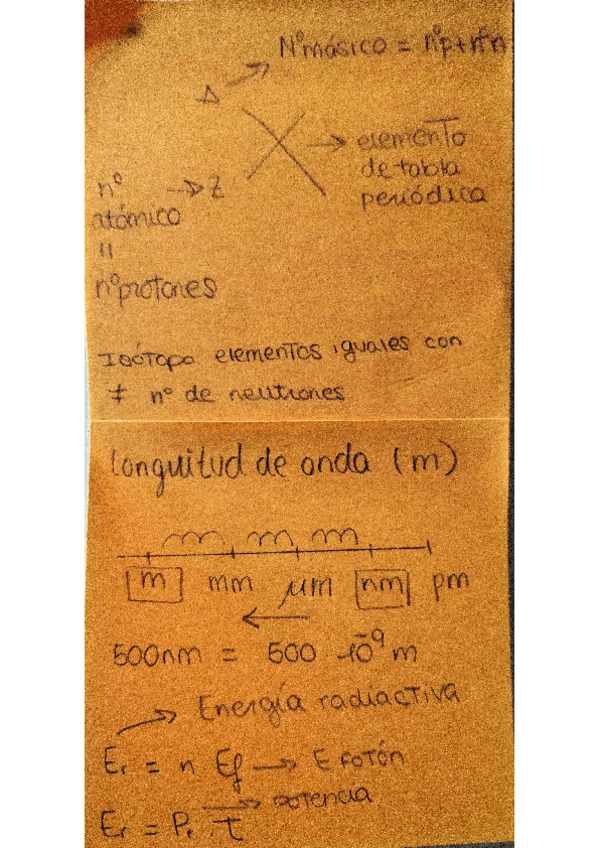 Nº másico = nºp+nºn
A
X → elemento
de tabla
periódica
nº → Z
atómico
=
nºprotones
Isótopo elementos iguales con
≠ nº de neutrones
longuitud de onda (m)
m mm μm nm pm
500nm = 500 · 10⁻⁹ m
Energía radiactiva
Er = n Ef → E FOTÓN
Er = P. t → POTENCIA